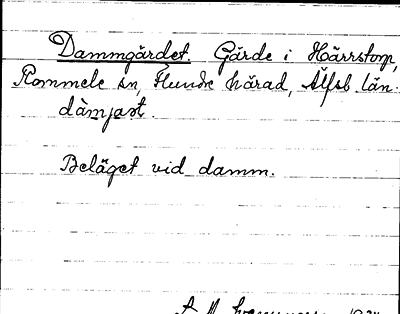 Dammgärdet. Gärde i Härrstorp,
Rommele sn, Flundre härad, Älfsb. län.
dàmjaṣt.
Beläget vid damm.